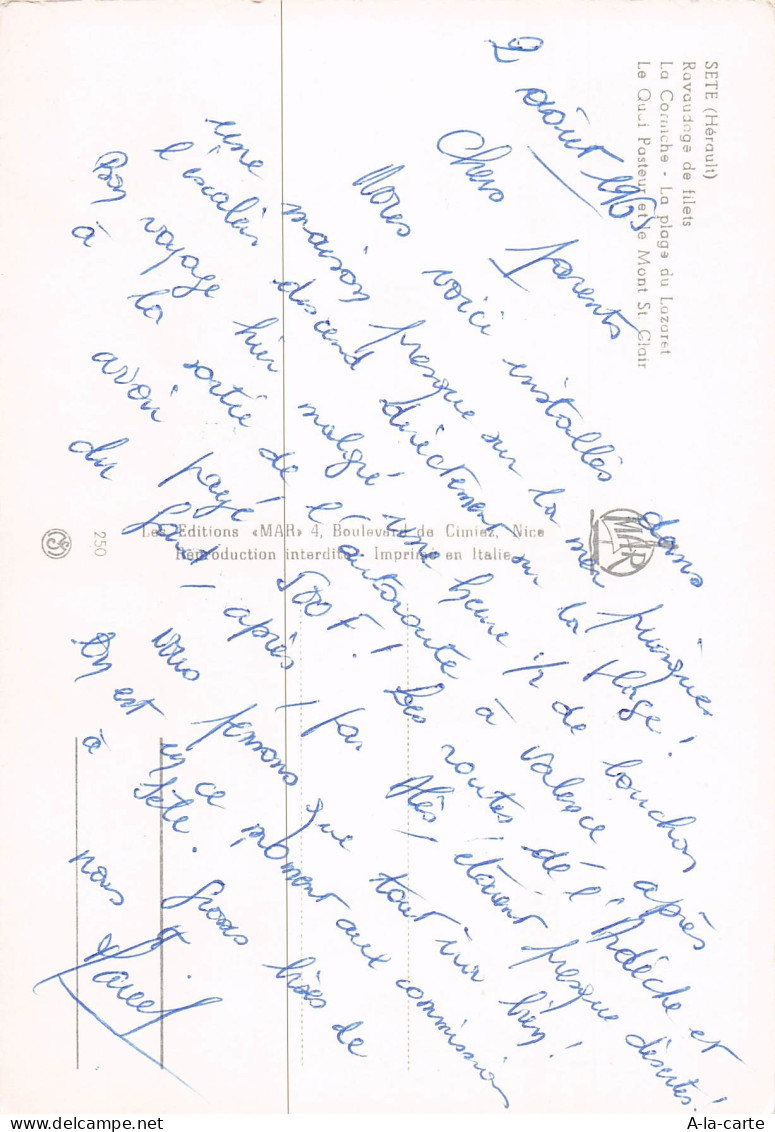 SETE (Hérault)
Ravaudage de filets
La Corniche - La plage du Lazaret
Le Quai Pasteur et le Mont St. Clair
2 août 1965
Chers parents
Nous voici installés dans
une maison presque sur la mer puisque
l'escalier descend directement sur la plage!
Bon voyage hier malgré une heure 1/2 de bouchon
à la sortie de l'autoroute à Valence après
avoir payé 500 F! Les routes de l'Ardèche et
du Gard (après / par Alès) étaient presque désertes!
Nous pensons que tout ira bien!
On est en ce moment aux commissions
à Sète. Grosses bises de
nous
Marcel
Les Editions «MAR» 4, Boulevard de Cimiez, Nice
Réproduction interdite - Imprimé en Italie
MAR
250
A-la-carte